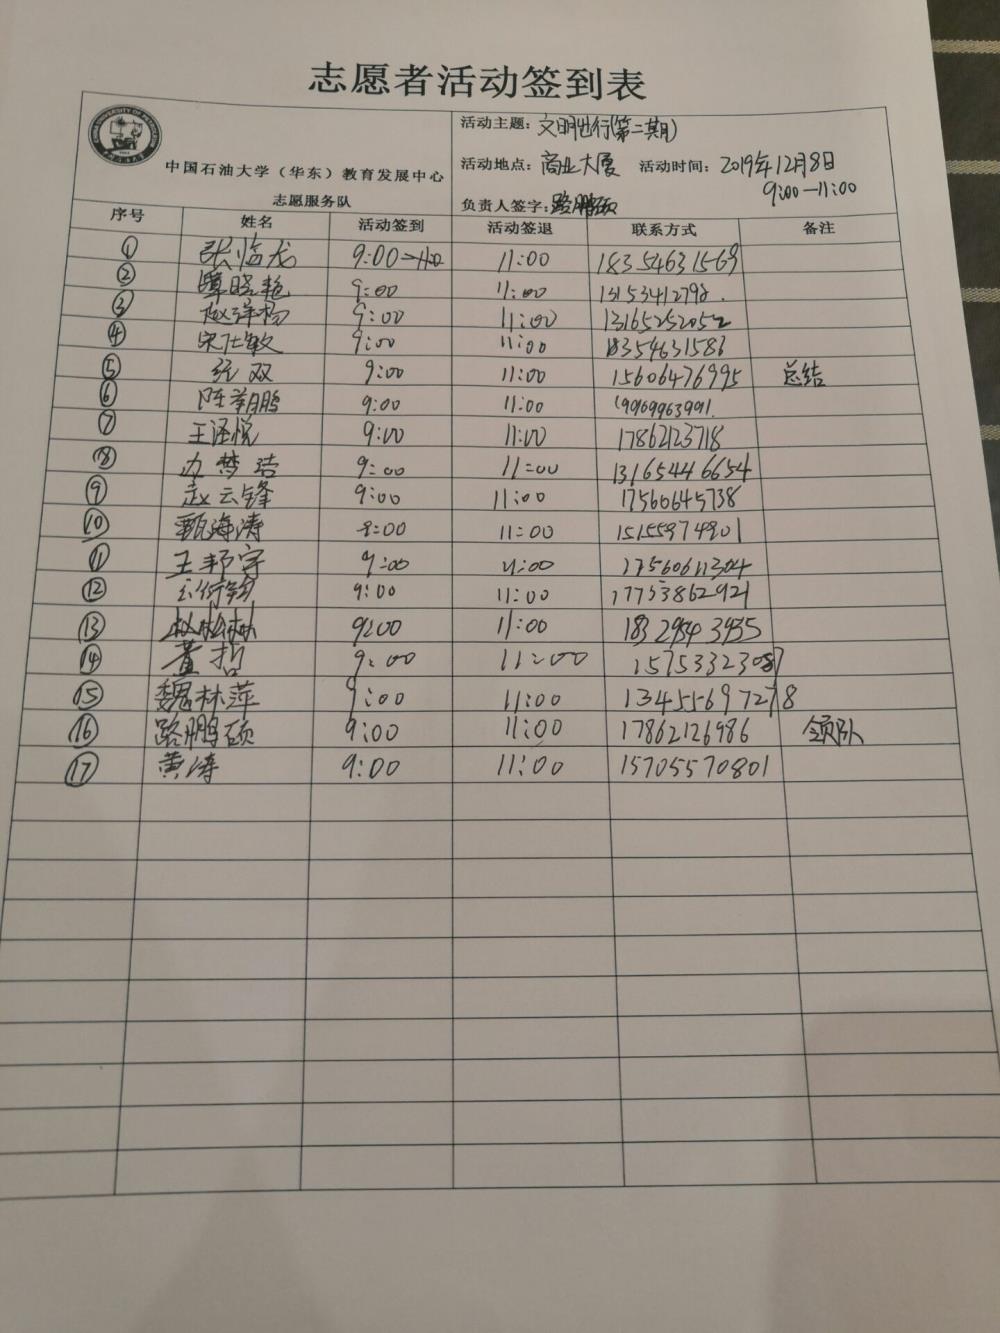 志愿者活动签到表
中国石油大学（华东）教育发展中心
志愿服务队
活动主题：文明出行(第二期)
活动地点：商业大厦 活动时间：2019年12月8日
9:00—11:00
负责人签字：路鹏硕
序号 姓名 活动签到 活动签退 联系方式 备注
① 张临龙 9:00—11:00 11:00 18354631569
② 覃晓艳 9:00 11:00 13153412798.
③ 赵洋杨 9:00 11:00 13165252052
④ 宋仕敏 9:00 11:00 18354631586
⑤ 张双 9:00 11:00 15606476995 总结
⑥ 陈 鹏 9:00 11:00 19969963991.
⑦ 王泽悦 9:00 11:00 17862123718
⑧ 梦洁 9:00 11:00 13165446654
⑨ 赵云锋 9:00 11:00 17560645738
⑩ 甄海涛 9:00 11:00 15155974901
⑪ 王邦宇 9:00 11:00 17560611304
⑫ 9:00 11:00 17753862921
⑬ 9:00 11:00 18329343435
⑭ 董哲 9:00 11:00 15753323087
⑮ 魏林萍 9:00 11:00 13455697278
⑯ 路鹏硕 9:00 11:00 17862126986 领队
⑰ 黄涛 9:00 11:00 15705570801